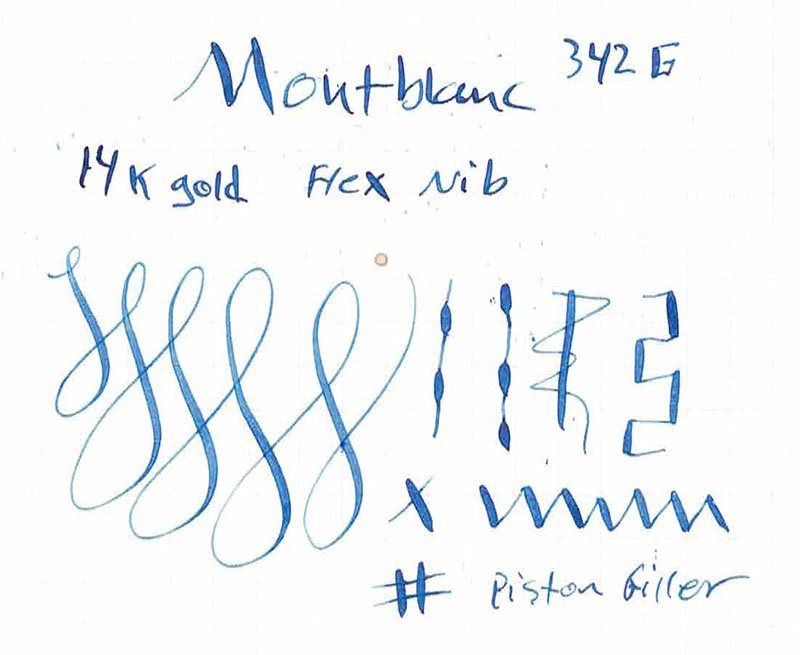 Montblanc 342 G
14K gold Flex Nib
x
# Piston Filler